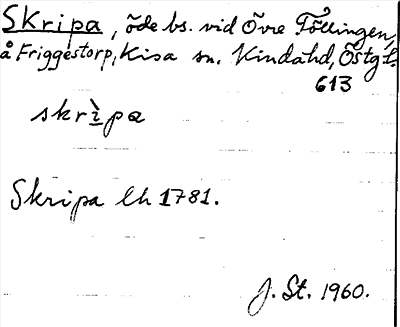 Skripa, öde bs. vid Övre Föllingen,
å Friggestorp, Kisa sn. Kinda hd, Östgl.
613
skrìpa
Skripa lh 1781.
J. St. 1960.